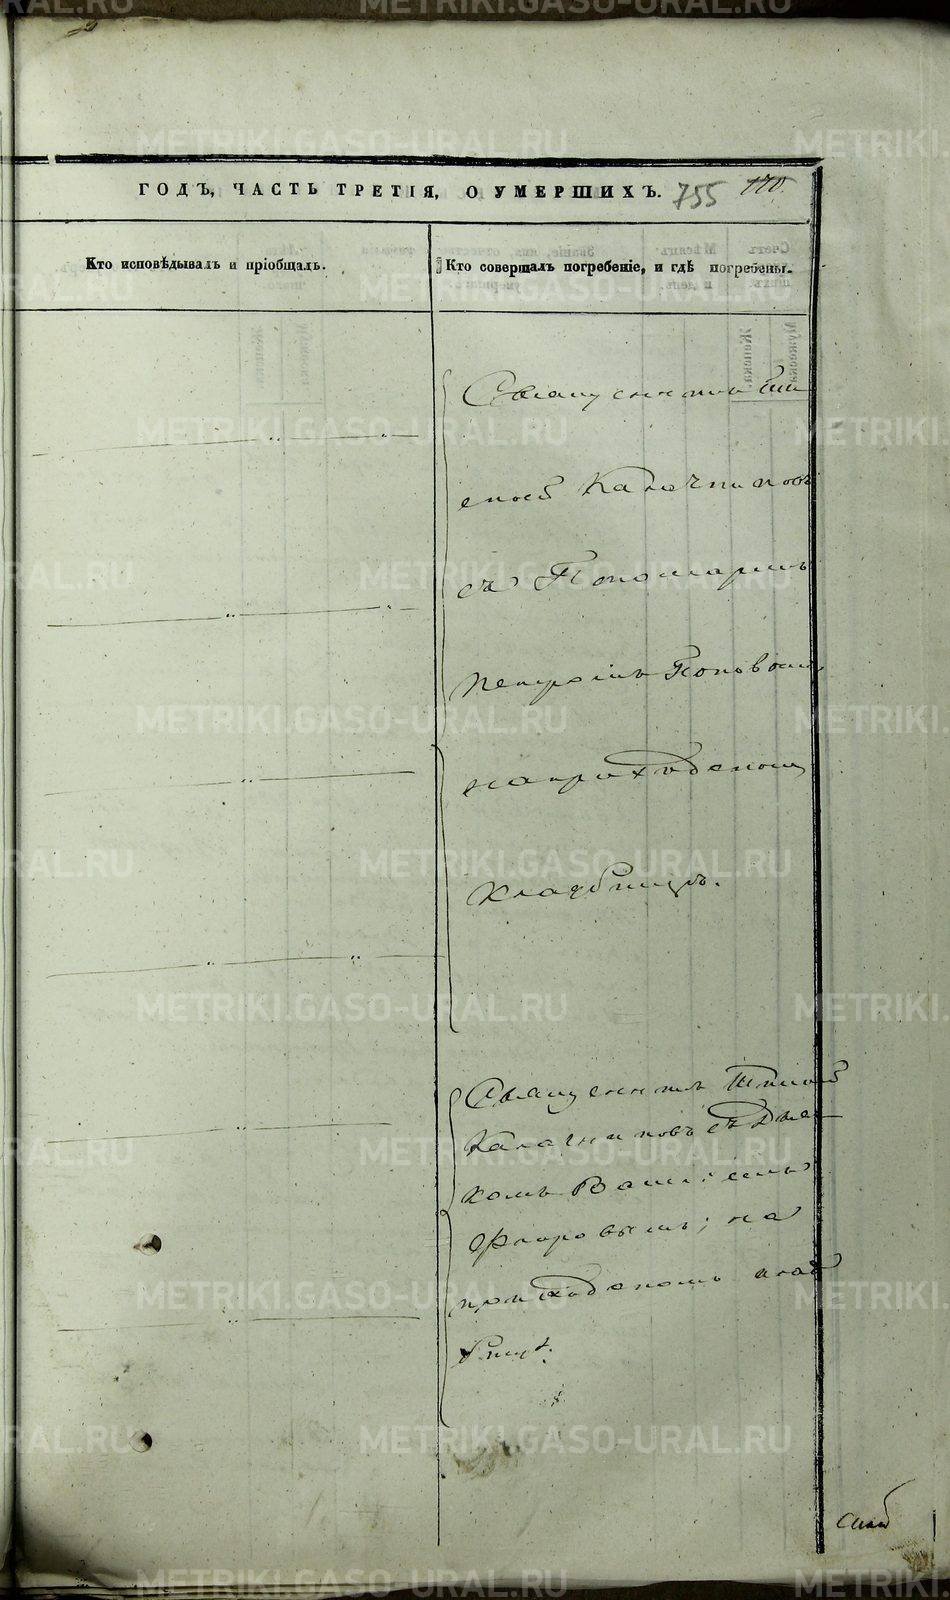 ГОДЪ, ЧАСТЬ ТРЕТІЯ, О УМЕРШИХЪ. 755 170.
Кто исповѣдывалъ и пріобщалъ.
Кто совершалъ погребеніе, и гдѣ погребены.
Священникъ
Калачниковъ
съ Пономаремъ
Петромъ Поповымъ
на приходскомъ
кладбищѣ.
Священникъ
Калачниковъ съ Дьяч
комъ
на
приходскомъ клад
бищѣ.
METRIKI.GASO-URAL.RU